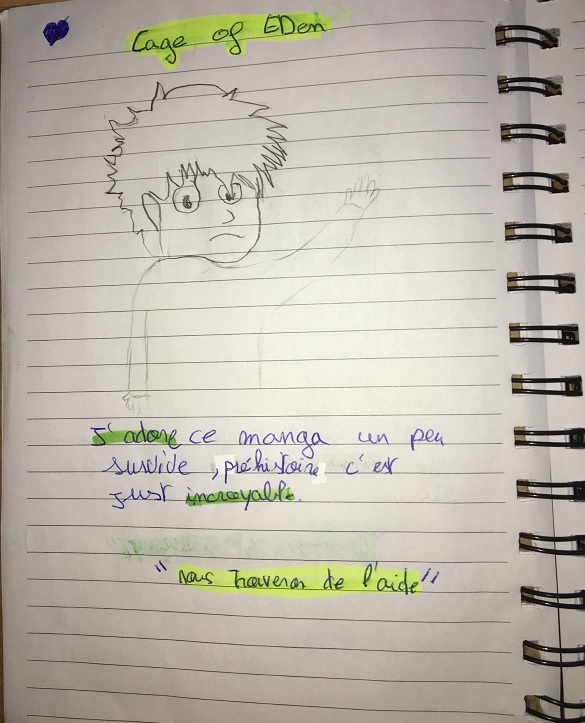 Cage of EDen
J'adore ce manga un peu
survive , préhistoire c'est
just incroyable.
"nous trouveron de l'aide"